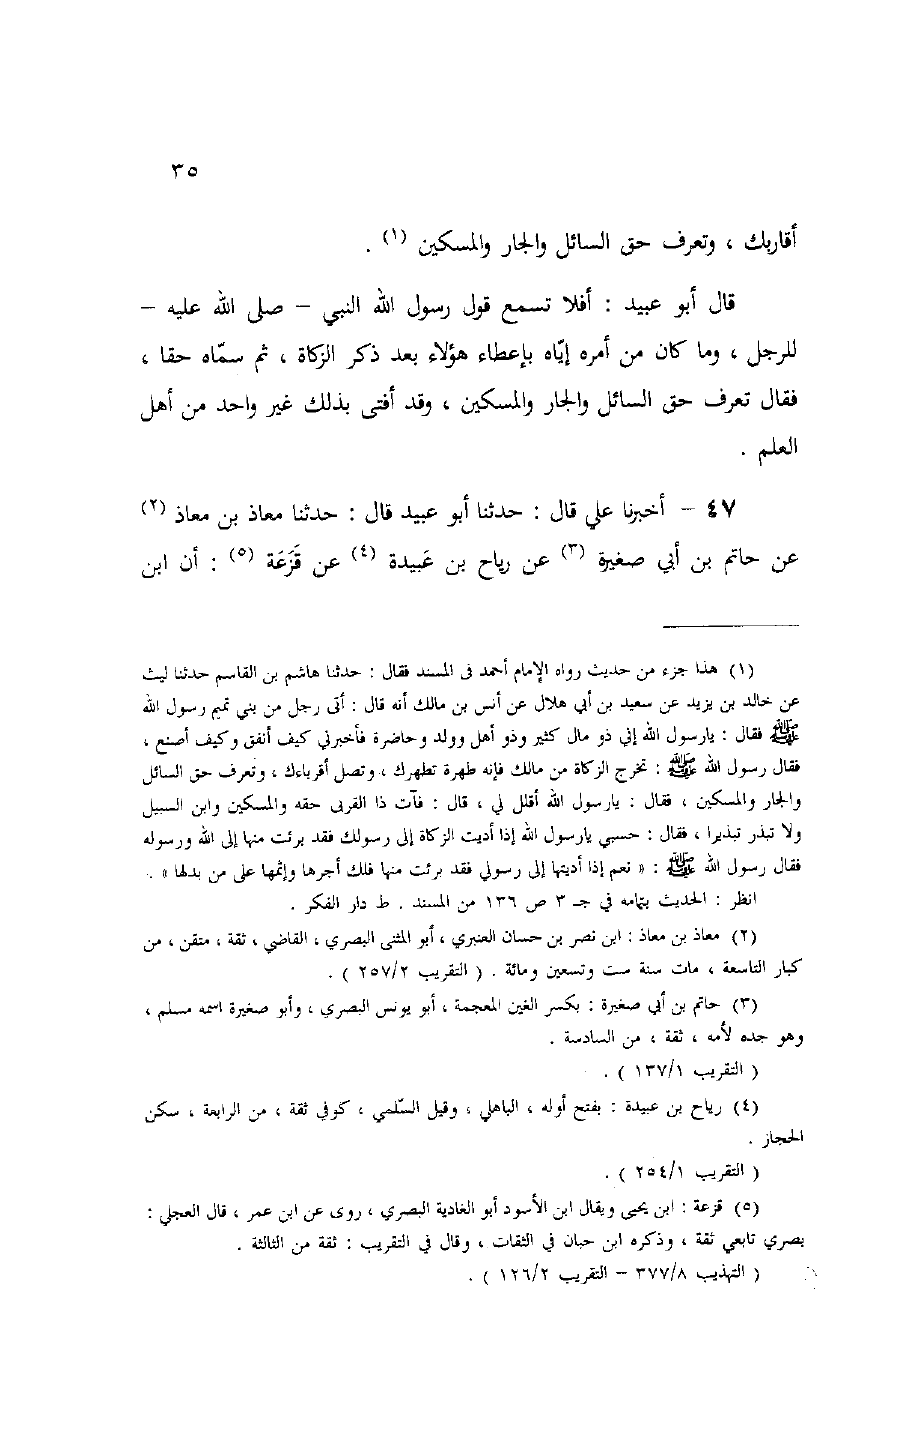 ٣٥
أقاربك ، وتعرف حق السائل والجار والمسكين (١) .
قال أبو عبيد : أفلا تسمع قول رسول الله النبي – صلى الله عليه –
للرجل ، وما كان من أمره إيّاه بإعطاء هؤلاء بعد ذكر الزكاة ، ثم سمّاه حقا ،
فقال تعرف حق السائل والجار والمسكين ، وقد أفتى بذلك غير واحد من أهل
العلم .
٤٧ – أخبرنا علي قال : حدثنا أبو عبيد قال : حدثنا معاذ بن معاذ (٢)
عن حاتم بن أبي صغيرة (٣) عن رياح بن عَبيدة (٤) عن قَزَعَة (٥) : أن ابن
(١) هذا جزء من حديث رواه الإمام أحمد فى المسند فقال : حدثنا هاشم بن القاسم حدثنا ليث
عن خالد بن يزيد عن سعيد بن أبي هلال عن أنس بن مالك أنه قال : أتى رجل من بني تميم رسول الله
ﷺ فقال : يارسول الله إني ذو مال كثير وذو أهل وولد وحاضرة فأخبرني كيف أنفق وكيف أصنع ،
فقال رسول الله ﷺ : تخرج الزكاة من مالك فإنه طهرة تطهرك ، وتصل أقرباءك ، وتعرف حق السائل
والجار والمسكين ، فقال : يارسول الله أقلل لي ، قال : فآت ذا القربى حقه والمسكين وابن السبيل
ولا تبذر تبذيرا ، فقال : حسبي يارسول الله إذا أديت الزكاة إلى رسولك فقد برئت منها إلى الله ورسوله
فقال رسول الله ﷺ : « نعم إذا أديتها إلى رسولي فقد برئت منها فلك أجرها وإثمها على من بدلها » .
انظر : الحديث بتمامه في جـ ٣ ص ١٣٦ من المسند . ط دار الفكر .
(٢) معاذ بن معاذ : ابن نصر بن حسان العنبري ، أبو المثنى البصري ، القاضي ، ثقة ، متقن ، من
كبار التاسعة ، مات سنة ست وتسعين ومائة . ( التقريب ٢٥٧/٢ ) .
(٣) حاتم بن أبي صغيرة : بكسر الغين المعجمة ، أبو يونس البصري ، وأبو صغيرة اسمه مسلم ،
وهو جده لأمه ، ثقة ، من السادسة .
( التقريب ١٣٧/١ ) .
(٤) رياح بن عبيدة : بفتح أوله ، الباهلي ، وقيل السّلمي ، كوفي ثقة ، من الرابعة ، سكن
الحجاز .
( التقريب ٢٥٤/١ ) .
(٥) قزعة : ابن يحيى ويقال ابن الأسود أبو الغادية البصري ، روى عن ابن عمر ، قال العجلي :
بصري تابعي ثقة ، وذكره ابن حبان في الثقات ، وقال في التقريب : ثقة من الثالثة .
( التهذيب ٣٧٧/٨ – التقريب ١٢٦/٢ ) .